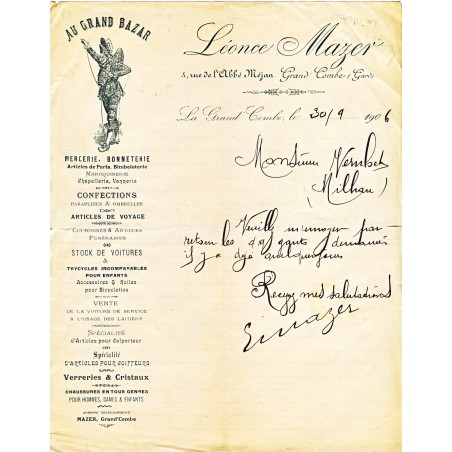 AU GRAND BAZAR
Léonce Mazer
1, rue de l'Abbé Méjan Grand-Combe (Gard)
La Grand'Combe, le 30/9 1906
MERCERIE, BONNETERIE
Articles de Paris, Bimbeloterie
MAROQUINERIE
Chapellerie, Vannerie
CONFECTIONS
PARAPLUIES & OMBRELLES
ARTICLES DE VOYAGE
COURONNES & ARTICLES
FUNÉRAIRES
STOCK DE VOITURES
&
TRYCYCLES INCOMPARABLES
POUR ENFANTS
Accessoires & Huiles
pour Bicyclettes
VENTE
DE LA VOITURE DE SERVICE
A L'USAGE DES LAITIERS
SPÉCIALITÉ
d'Articles pour Colporteur
Spécialité
D'ARTICLES POUR COIFFEURS
Verreries & Cristaux
CHAUSSURES EN TOUS GENRES
POUR HOMMES, DAMES & ENFANTS
ADRESSE TÉLÉGRAPHIQUE
MAZER, Grand'Combe
Monsieur
Milhau
Veuillez m'envoyer par
retour les gants demandés
il y a déjà quelques jours
Recevez mes salutations
Mazer